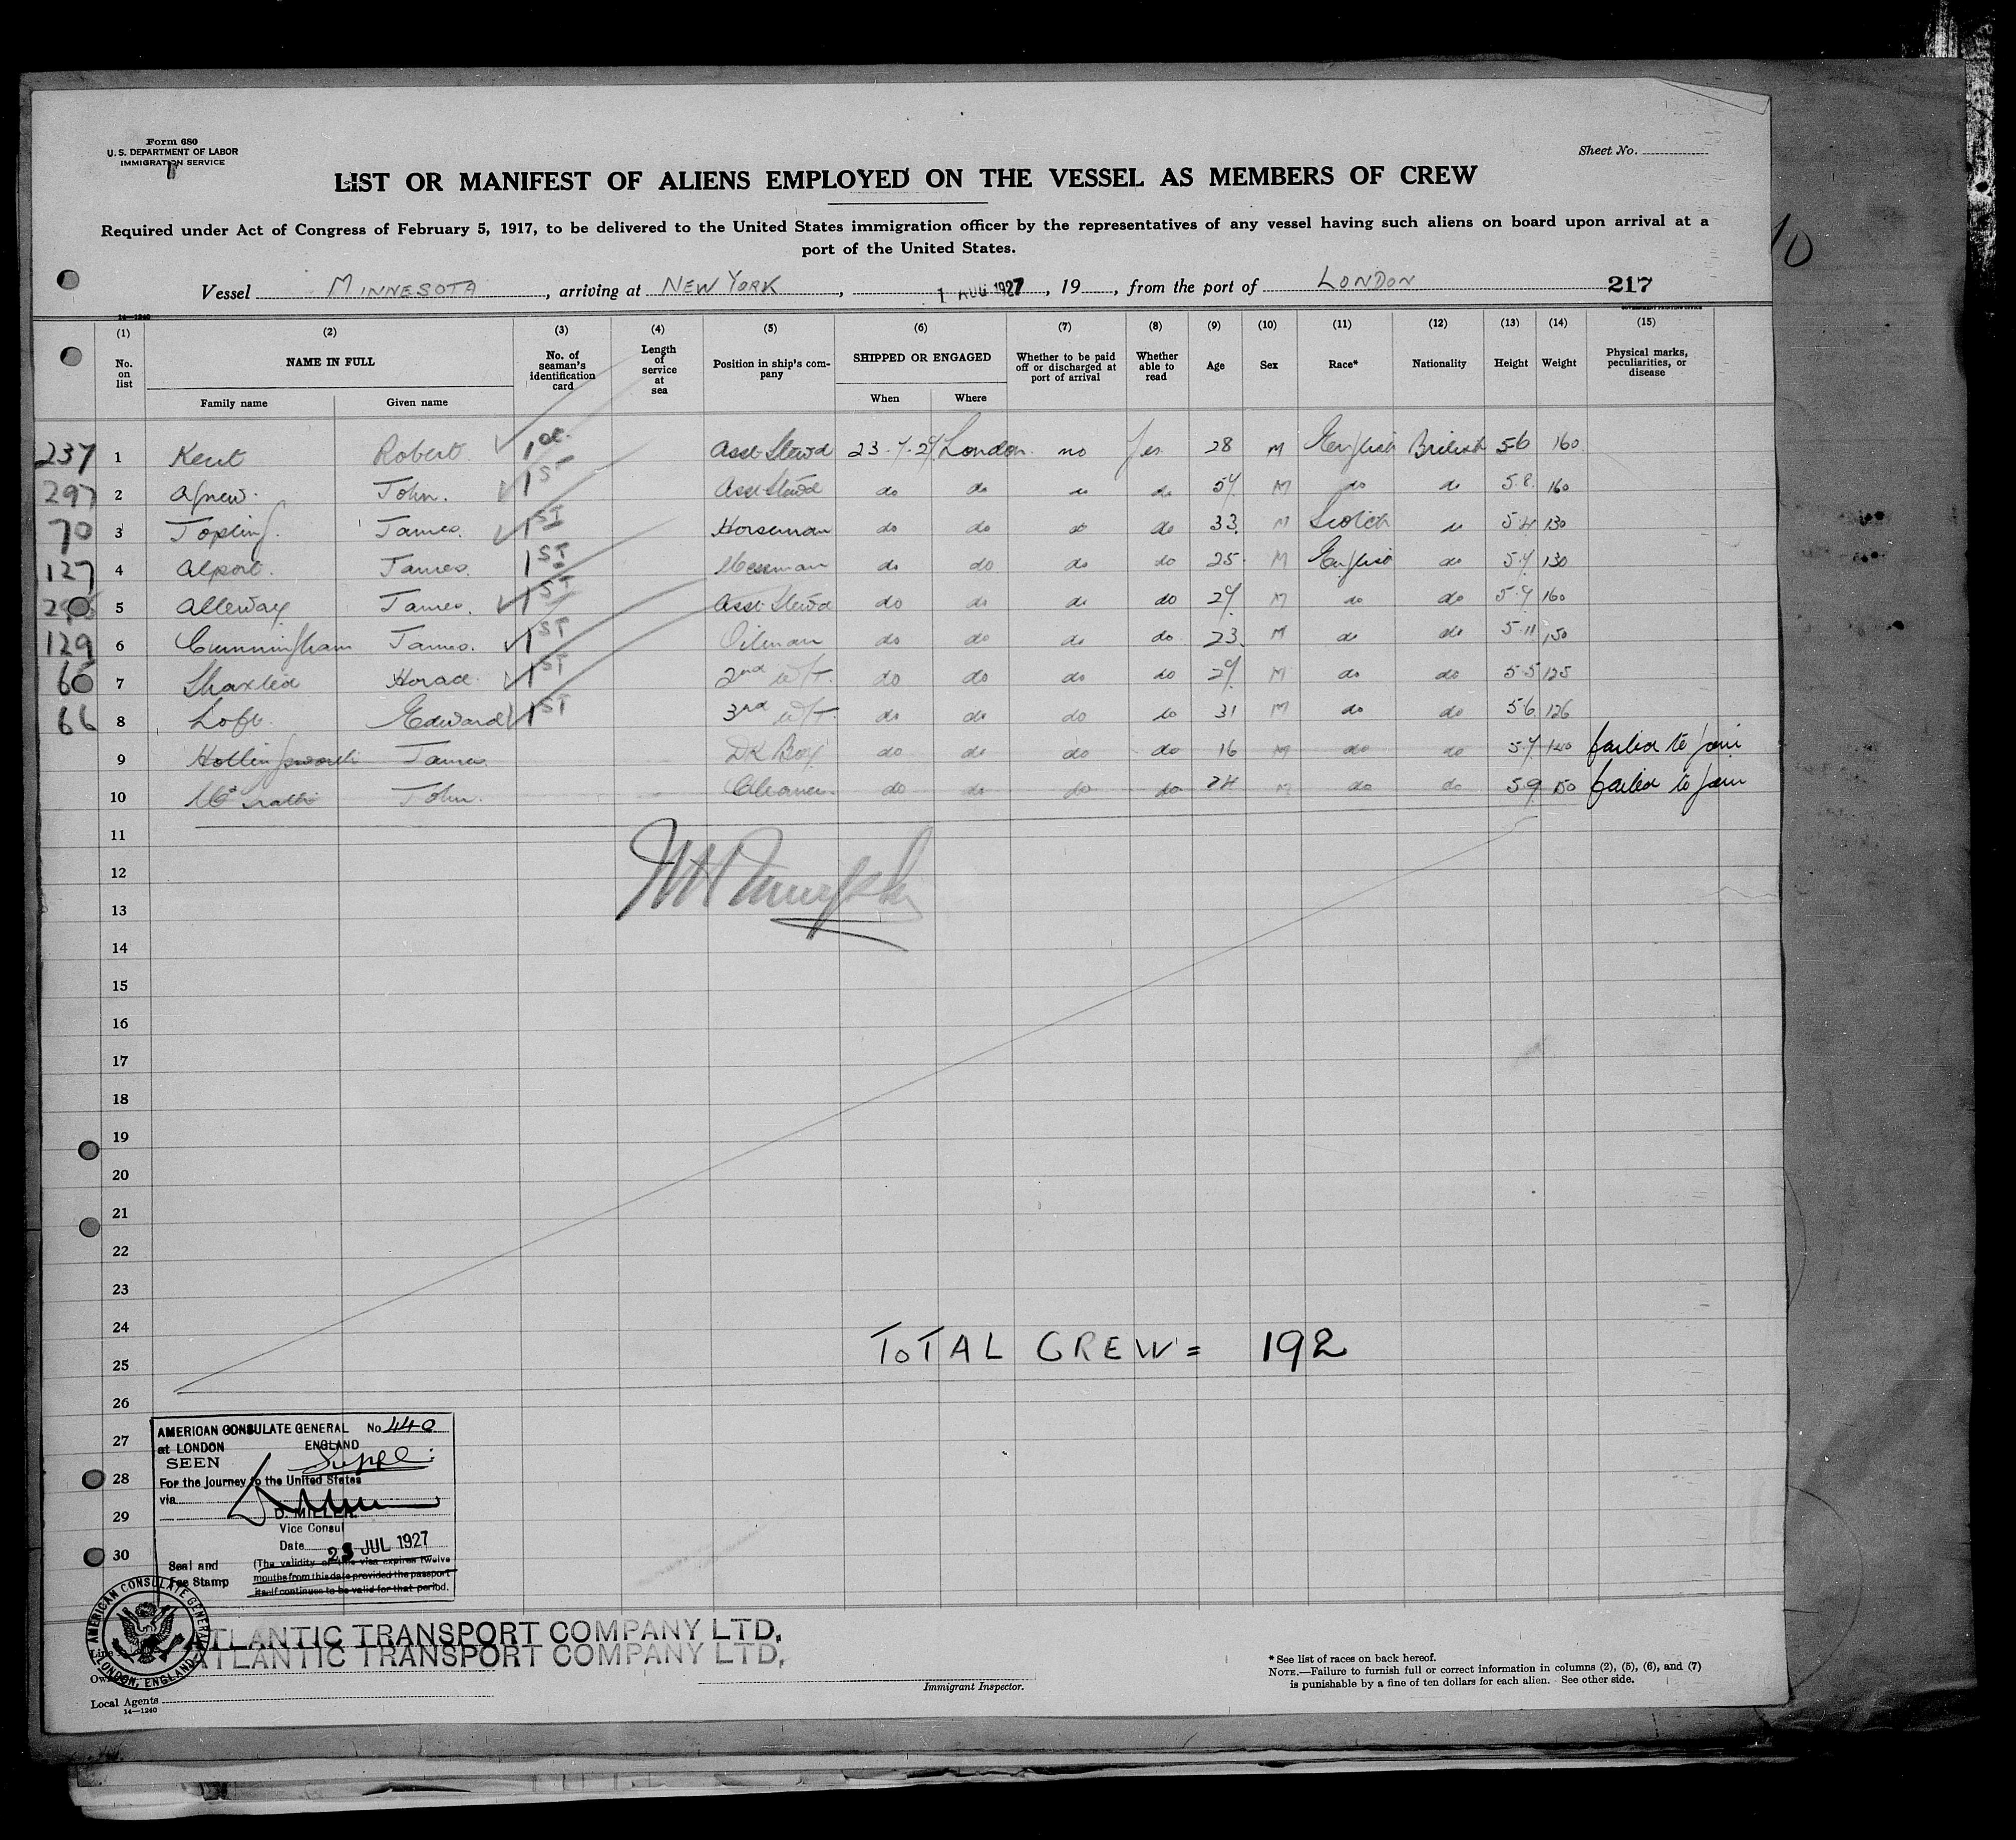 Form 680
U. S. DEPARTMENT OF LABOR
IMMIGRATION SERVICE
Sheet No.
LIST OR MANIFEST OF ALIENS EMPLOYED ON THE VESSEL AS MEMBERS OF CREW
Required under Act of Congress of February 5, 1917, to be delivered to the United States immigration officer by the representatives of any vessel having such aliens on board upon arrival at a
port of the United States.
10
Vessel MINNESOTA, arriving at NEW YORK, 1 AUG 1927, 19, from the port of LONDON 217
14—1240 GOVERNMENT PRINTING OFFICE
(1) (2) (3) (4) (5) (6) (7) (8) (9) (10) (11) (12) (13) (14) (15)
No. on list NAME IN FULL No. of seaman's identification card Length of service at sea Position in ship's company SHIPPED OR ENGAGED Whether to be paid off or discharged at port of arrival Whether able to read Age Sex Race* Nationality Height Weight Physical marks, peculiarities, or disease
Family name Given name When Where
237 1 Kent Robert. 1 Asst Stewd 23.7.27 London no Yes 28 M English British 5.6 160
297 2 Agnew. John. 1ST Asst Stewd do do do do 57 M do do 5.8. 160
70 3 Topling. James. 1ST Horseman do do do do 33 M Scotch do 5.4 130
127 4 Alport. James. 1ST Messman do do do do 25. M English do 5.7 130
5 Alleway James. 1ST Asst Stewd do do do do 27 M do do 5.7 160
129 6 Cunningham James. 1ST Oilman do do do do 23. M do do 5.11 150
60 7 Shaxted Horace. 1ST 2nd W/T. do do do do 27 M do do 5.5 125
66 8 Loft. Edward 1ST 3rd W/T. do do do do 31 M do do 5.6 126
9 Hollingsworth James DK Boy do do do do 16 M do do 5.7 140 failed to join
10 McGrath John. Cleaner. do do do do 24 M do do 5.9 150 failed to join
11
12
13
14
15
16
17
18
19
20
21
22
23
24
TOTAL CREW = 192
25
26
27
28
29
30
AMERICAN CONSULATE GENERAL No. 440
at LONDON ENGLAND
SEEN Suppl.
For the journey to the United States
via
D. MILLER.
Vice Consul
Date 23 JUL 1927
Seal and Fee Stamp
(The validity of this visa expires twelve
months from this date provided the passport
itself continues to be valid for that period.
AMERICAN CONSULATE GENERAL
LONDON, ENGLAND.
ATLANTIC TRANSPORT COMPANY LTD.
ATLANTIC TRANSPORT COMPANY LTD.
Local Agents
14—1240
Immigrant Inspector.
* See list of races on back hereof.
NOTE.—Failure to furnish full or correct information in columns (2), (5), (6), and (7)
is punishable by a fine of ten dollars for each alien. See other side.